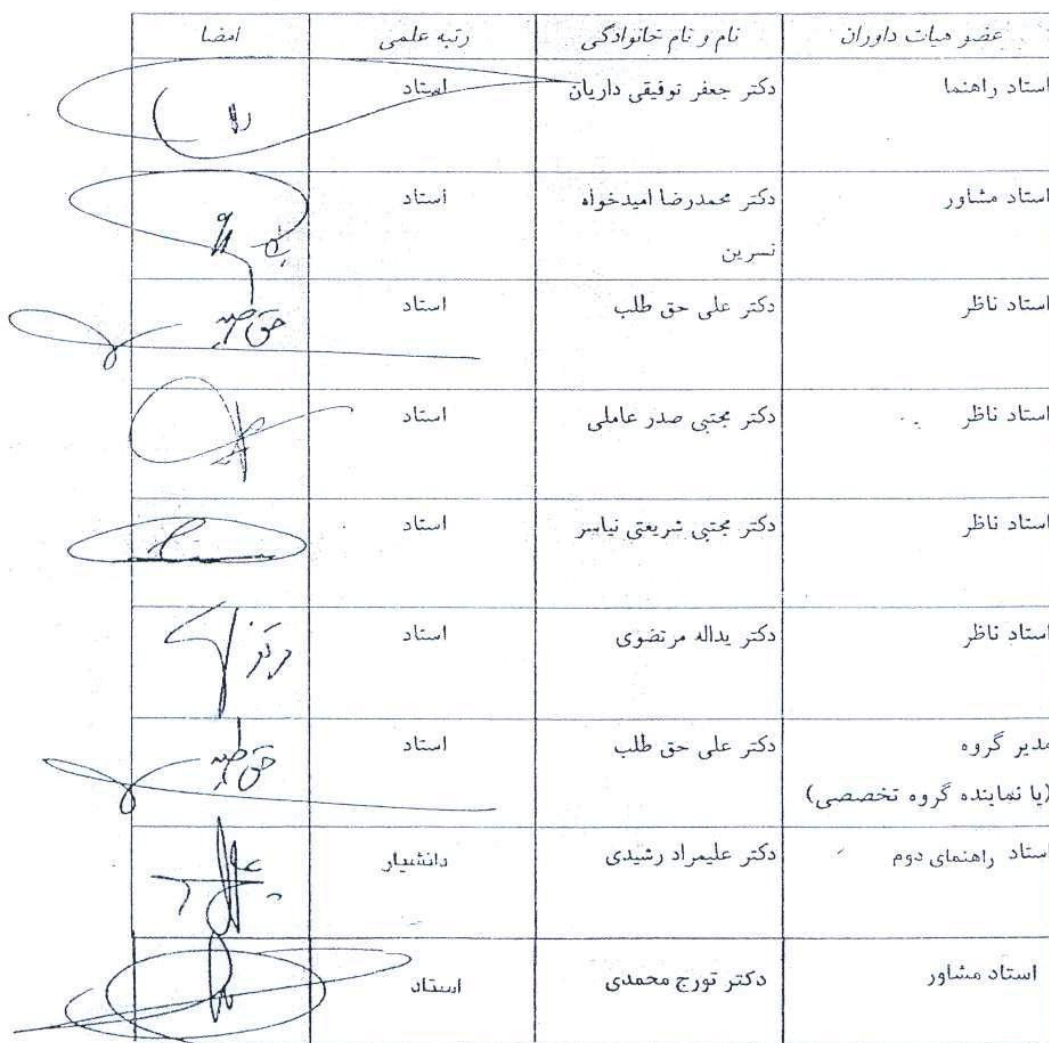 عضو هیات داوران نام و نام خانوادگی رتبه علمی امضا
استاد راهنما دکتر جعفر توفیقی داریان استاد
استاد مشاور دکتر محمدرضا امیدخواه استاد
نسرین
استاد ناظر دکتر علی حق طلب استاد
استاد ناظر دکتر مجتبی صدر عاملی استاد
استاد ناظر دکتر مجتبی شریعتی نیاسر استاد
استاد ناظر دکتر یداله مرتضوی استاد
مدیر گروه دکتر علی حق طلب استاد
(یا نماینده گروه تخصصی)
استاد راهنمای دوم دکتر علیمراد رشیدی دانشیار
استاد مشاور دکتر تورج محمدی استاد